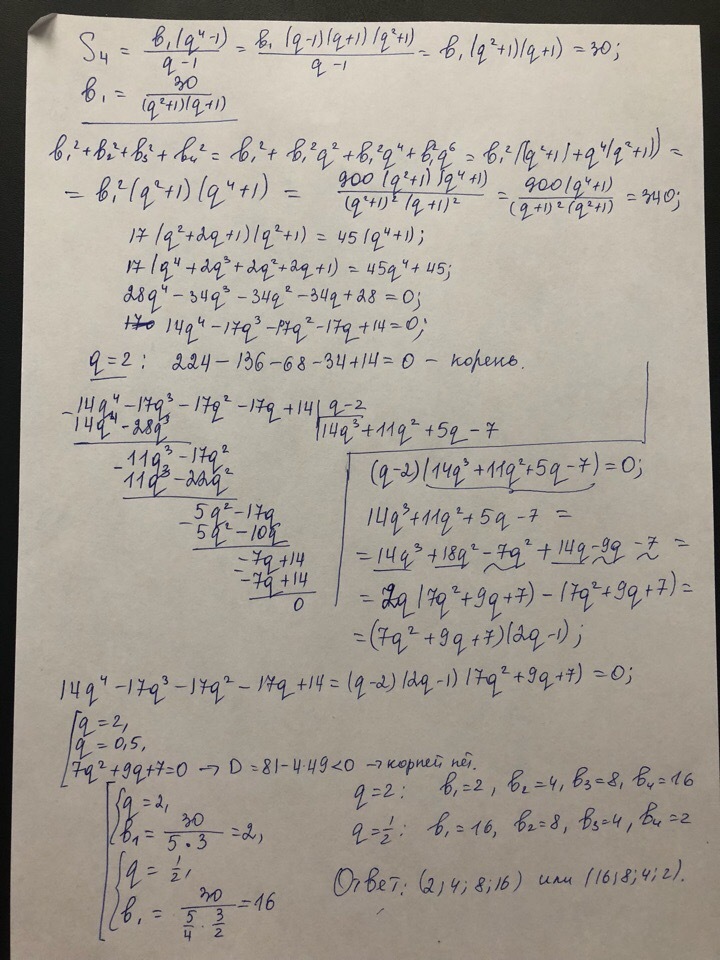 S₄ = b₁(q⁴-1)/(q-1) = b₁(q-1)(q+1)(q²+1)/(q-1) = b₁(q²+1)(q+1) = 30;
b₁ = 30/((q²+1)(q+1))
b₁² + b₂² + b₃² + b₄² = b₁² + b₁²q² + b₁²q⁴ + b₁²q⁶ = b₁²((q²+1)+q⁴(q²+1)) =
= b₁²(q²+1)(q⁴+1) = 900(q²+1)(q⁴+1)/((q²+1)²(q+1)²) = 900(q⁴+1)/((q+1)²(q²+1)) = 340;
17(q²+2q+1)(q²+1) = 45(q⁴+1);
17(q⁴+2q³+2q²+2q+1) = 45q⁴+45;
28q⁴-34q³-34q²-34q+28=0;
14q⁴-17q³-17q²-17q+14=0;
q=2: 224-136-68-34+14=0 - корень.
-14q⁴-17q³-17q²-17q+14 | q-2
14q⁴-28q³ | 14q³+11q²+5q-7
-11q³-17q²
11q³-22q²
-5q²-17q
5q²-10q
-7q+14
-7q+14
0
(q-2)(14q³+11q²+5q-7)=0;
14q³+11q²+5q-7 =
= 14q³+18q²-7q²+14q-9q-7 =
= 2q(7q²+9q+7)-(7q²+9q+7) =
= (7q²+9q+7)(2q-1);
14q⁴-17q³-17q²-17q+14 = (q-2)(2q-1)(7q²+9q+7)=0;
[q=2,
q=0,5,
7q²+9q+7=0 → D=81-4·49<0 → корней нет.
[{q=2,
b₁= 30/(5·3) =2,
{q=1/2,
b₁= 30/(5/4·3/2) =16
q=2: b₁=2, b₂=4, b₃=8, b₄=16
q=1/2: b₁=16, b₂=8, b₃=4, b₄=2
Ответ: (2;4;8;16) или (16;8;4;2).